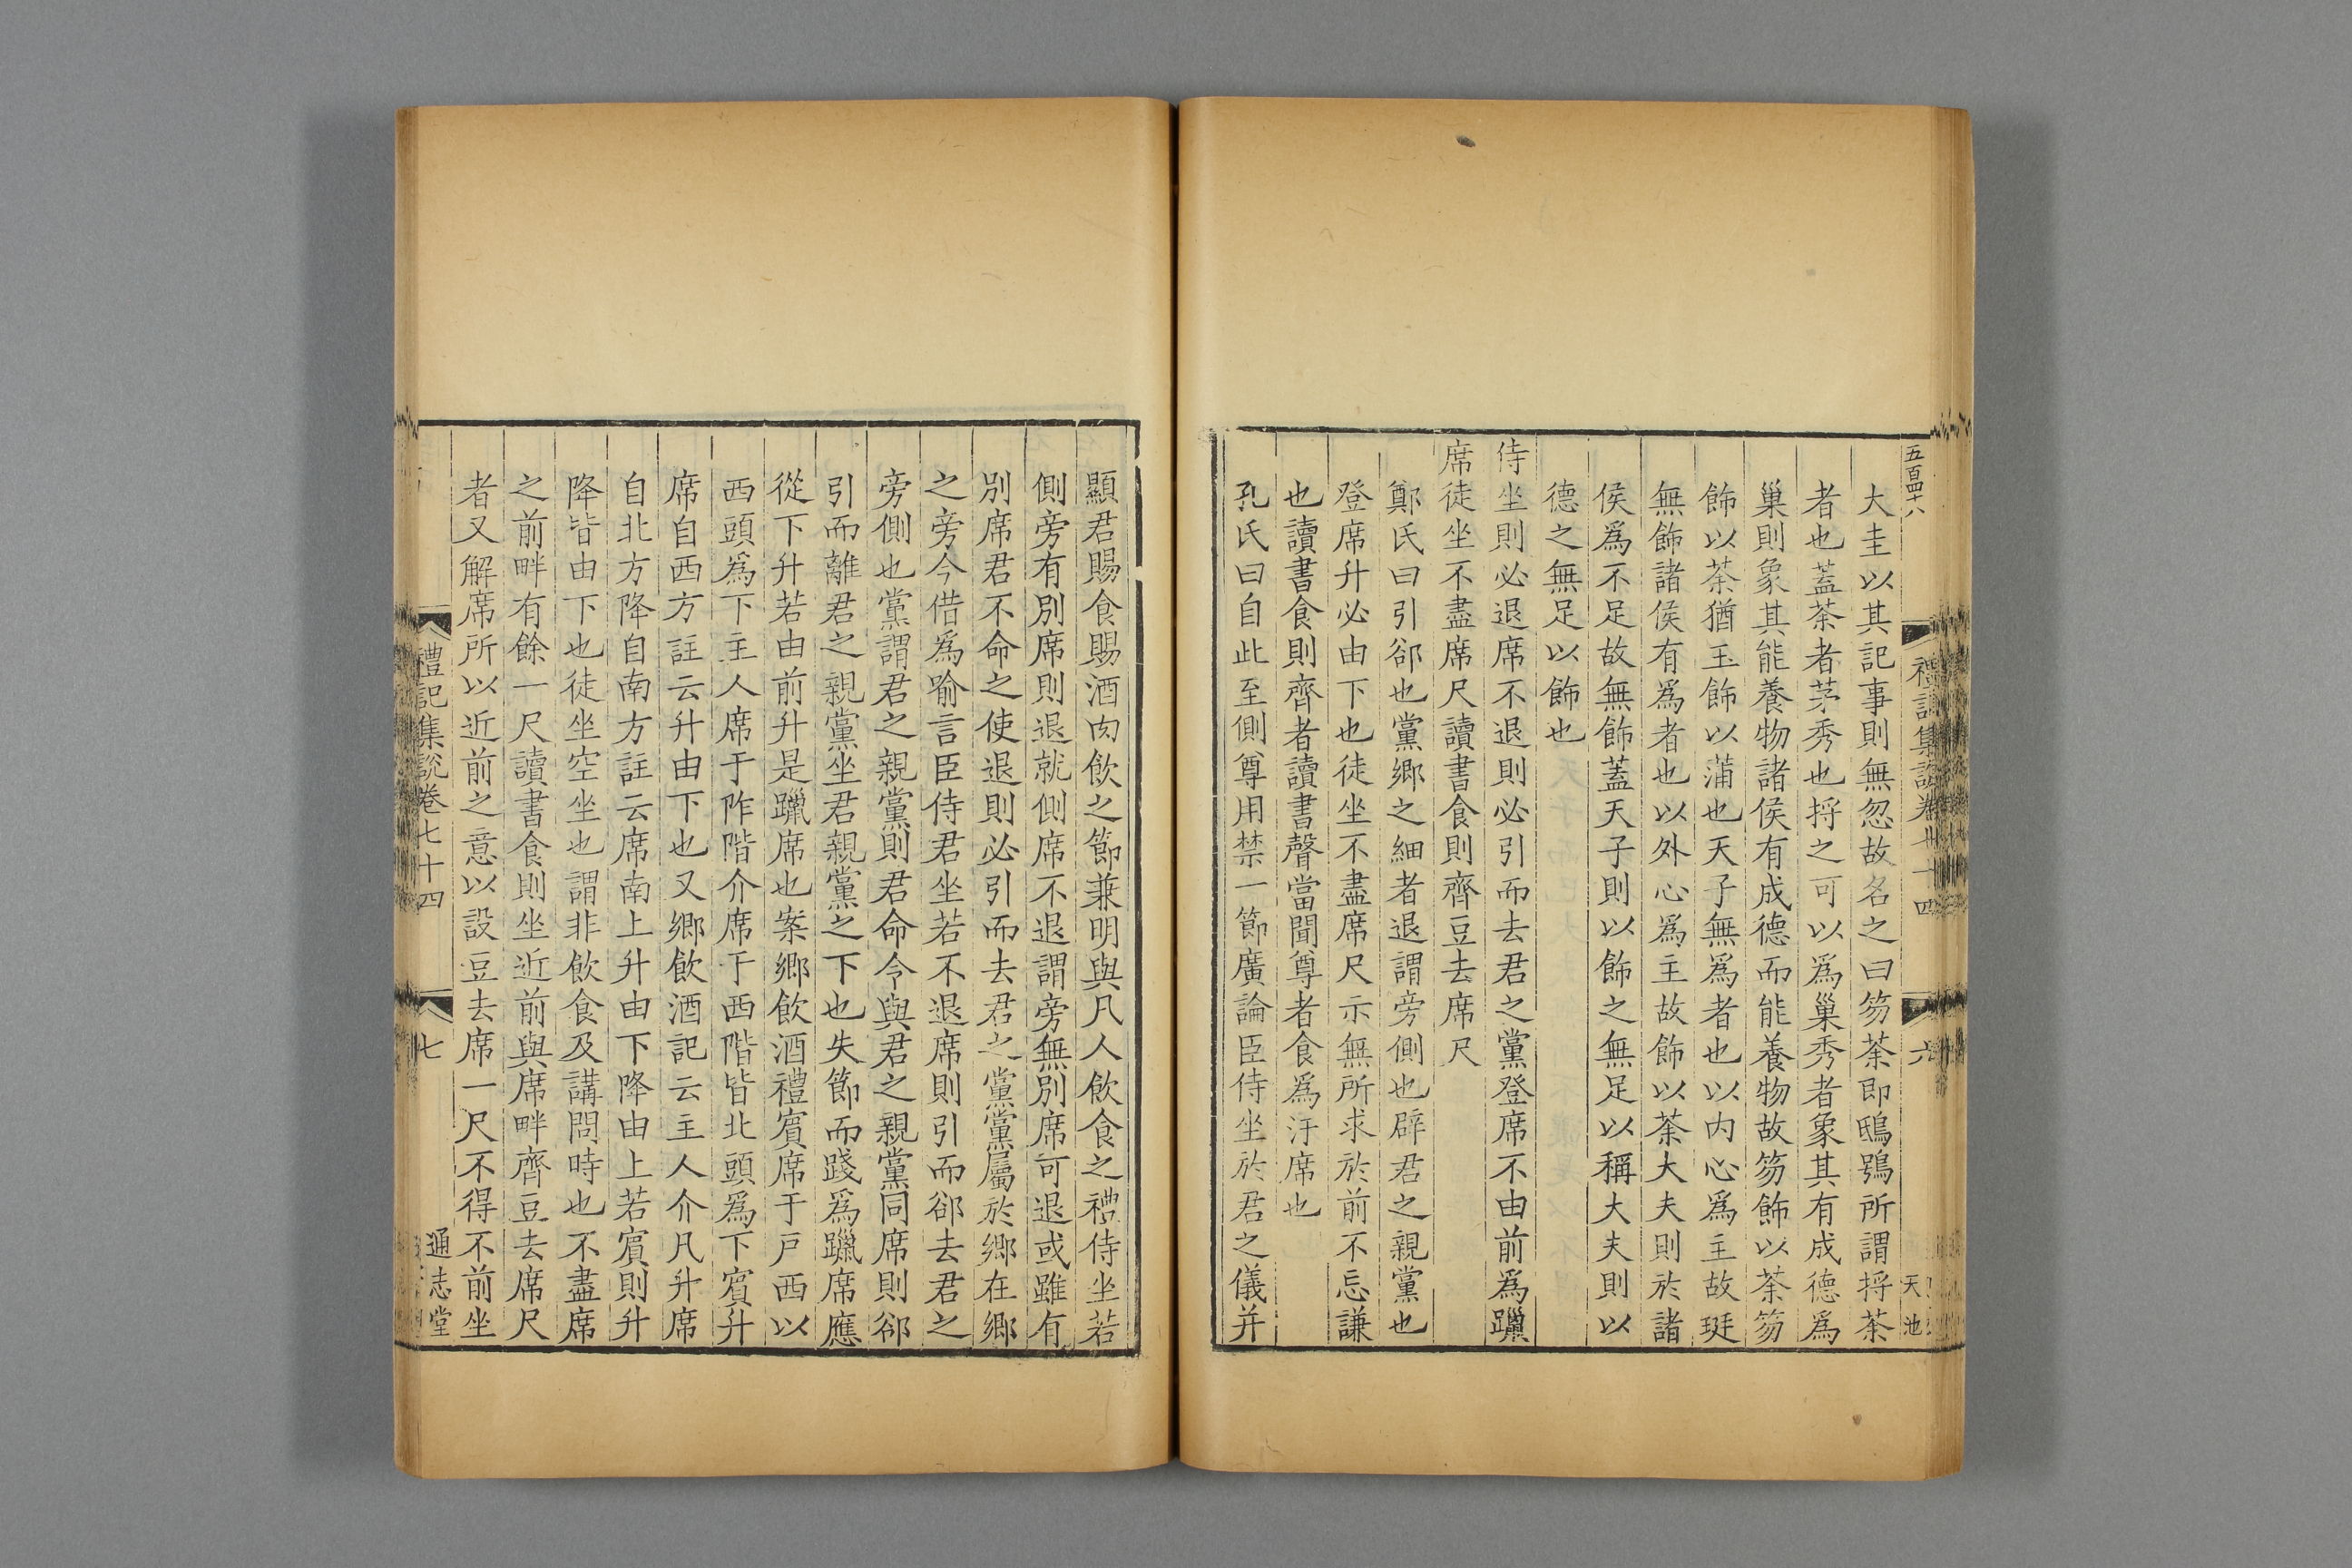 五百四十八
禮記集說卷七十四
六
天池
大圭以其記事則無忽故名之曰笏荼即鴟鴞所謂捋荼
者也蓋荼者茅秀也捋之可以為巢秀者象其有成德為
巢則象其能養物諸侯有成德而能養物故笏飾以荼笏
飾以荼猶玉飾以蒲也天子無為者也以內心為主故珽
無飾諸侯有為者也以外心為主故飾以荼大夫則於諸
侯為不足故無飾蓋天子則以飾之無足以稱大夫則以
德之無足以飾也
侍坐則必退席不退則必引而去君之黨登席不由前為躐
席徒坐不盡席尺讀書食則齊豆去席尺
鄭氏曰引郤也黨鄉之細者退謂旁側也辟君之親黨也
登席升必由下也徒坐不盡席尺示無所求於前不忘謙
也讀書食則齊者讀書聲當聞尊者食為汙席也
孔氏曰自此至側尊用禁一節廣論臣侍坐於君之儀并
顯君賜食賜酒肉飲之節兼明與凡人飲食之禮侍坐若
側旁有別席則退就側席不退謂旁無別席可退或雖有
別席君不命之使退則必引而去君之黨黨屬於鄉在鄉
之旁今借為喻言臣侍君坐若不退席則引而郤去君之
旁側也黨謂君之親黨則君命令與君之親黨同席則郤
引而離君之親黨坐君親黨之下也失節而踐為躐席應
從下升若由前升是躐席也案鄉飲酒禮賔席于戶西以
西頭為下主人席于阼階介席于西階皆北頭為下賔升
席自西方註云升由下也又鄉飲酒記云主人介凡升席
自北方降自南方註云席南上升由下降由上若賔則升
降皆由下也徒坐空坐也謂非飲食及講問時也不盡席
之前畔有餘一尺讀書食則坐近前與席畔齊豆去席尺
者又解席所以近前之意以設豆去席一尺不得不前坐
禮記集說卷七十四
七
通志堂